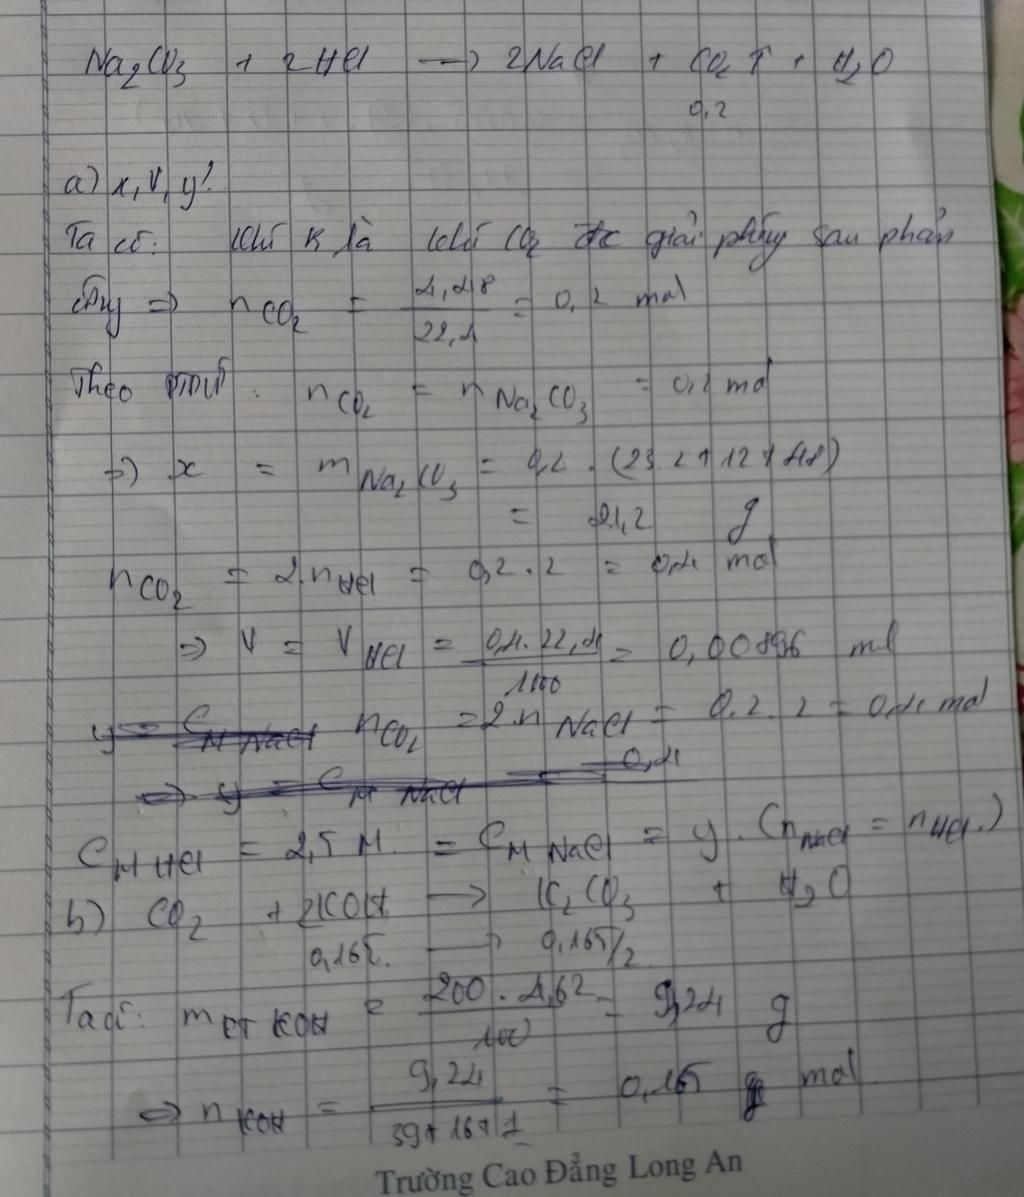 Na₂CO₃ + 2HCl → 2NaCl + CO₂↑ + H₂O
0,2
a) x, V, y?
Ta có: Khí K là khí CO₂ đc giải phóng sau phản
ứng ⇒ nCO₂ = 4,48/22,4 = 0,2 mol
Theo PTPƯ: nCO₂ = nNa₂CO₃ = 0,2 mol
⇒ x = mNa₂CO₃ = 0,2 . (23.2+12+48)
= 21,2 g
nCO₂ = 2.nHCl = 0,2.2 = 0,4 mol
⇒ V = VHCl = 0,4.22,4/1000 = 0,00896 ml
y = CM NaCl nCO₂ = 2.nNaCl = 0,2.2 = 0,4 mol
⇒ y = CM NaCl = 0,4
CM HCl = 2,5 M. = CM NaCl = y. (nNaCl = nHCl.)
b) CO₂ + 2KOH → K₂CO₃ + H₂O
0,165. → 0,165/2
Ta có: mct KOH = 200.4,62/100 = 9,24 g
⇒ nKOH = 9,24/39+16+1 = 0,165 mol
Trường Cao Đẳng Long An